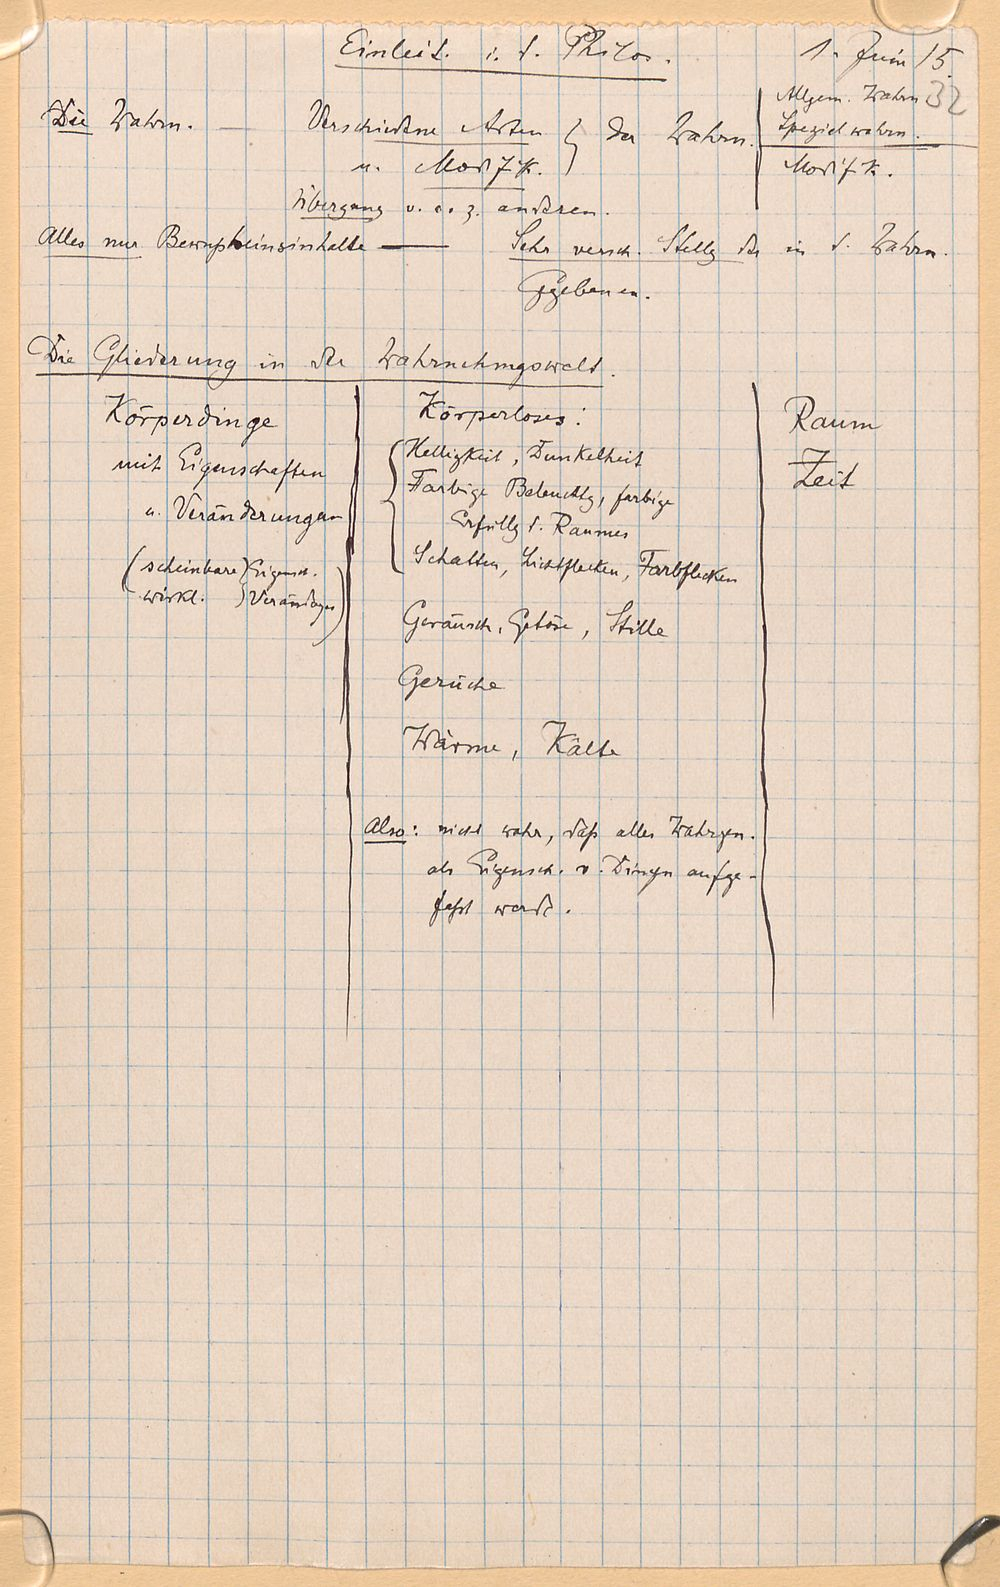 Einleit. i. d. Philos.
1. Juni 15.
32
Die Wahrn. — Verschiedene Arten } der Wahrn.
u. Modifk.
Allgem. Wahrn
Spezielwahrn.
Modifk.
Übergang v. e. z. anderen.
Alles nur Bewußtseinsinhalte — Sehr versch. Stellg des in d. Wahrn.
Gegebenen.
Die Gliederung in der Wahrnehmungswelt.
Körperdinge
mit Eigenschaften
u. Veränderungen
(scheinbare) Eigensch.
wirkl. ) Verändgen)
Körperloses:
Helligkeit, Dunkelheit
Farbige Beleuchtg, farbige
Erfüllg d. Raumes
Schatten, Lichtflecken, Farbflecken
Geräusch, Getöse, Stille
Gerüche
Wärme, Kälte
Also: nicht wahr, daß alles Wahrgen.
als Eigensch. v. Dingen aufge-
faßt werde.
Raum
Zeit